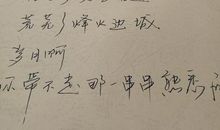 荒芜了烽火边城
岁月啊
你带不走那一串串熟悉